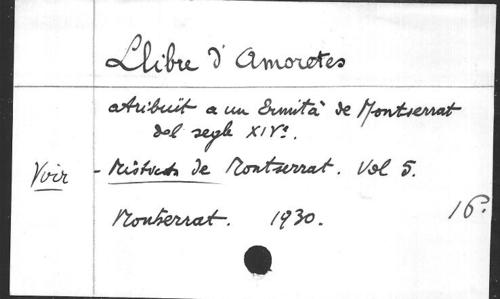 Llibre d'Amoretes
atribuit a un Ermità de Montserrat
del segle XIVe.
Voir - Místichs de Montserrat. Vol 5.
Montserrat. 1930. 16º